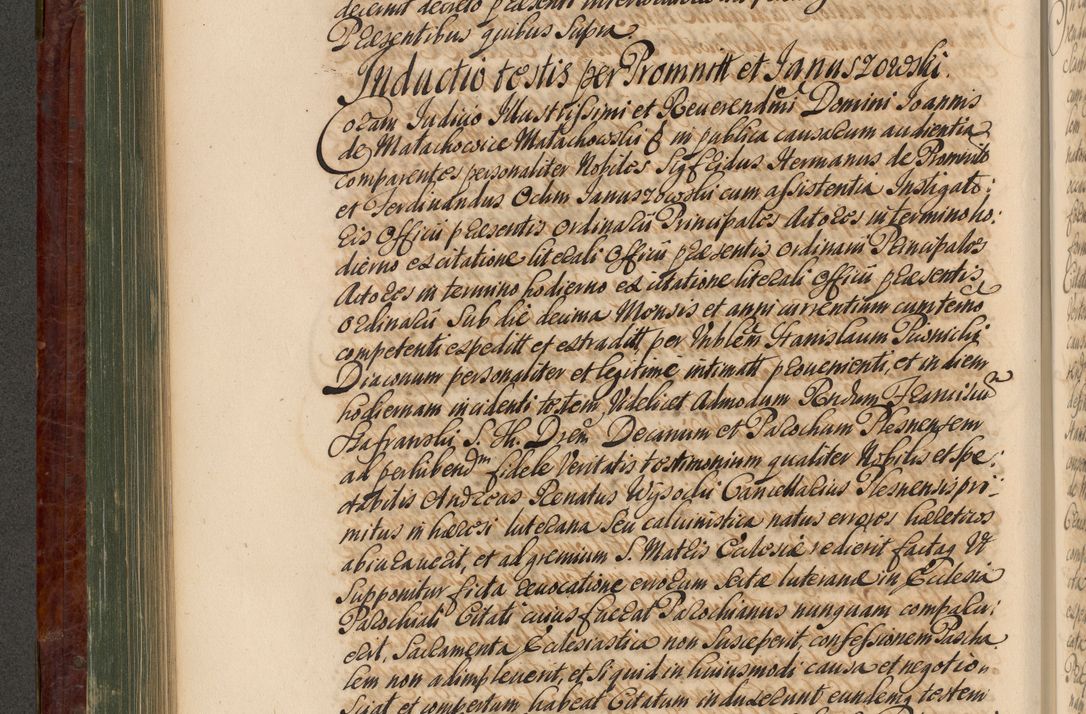 decernit decreto præsenti
Præsentibus quibus Supra.
Inductio testis per Promnitt et Januszowski.
Coram Judicio Illustrissimi et Reverendmi Domini Joannis
de Małachowice Małachowski & in publica causarum audientia
comparentes personaliter Nobiles Sigfridus Hermanus de Promnitz
et Ferdinandus Ochm Januszowski cum assistentia Instigato:
ris Officii præsentis ordinarii Principales Actores in termino ho:
dierno ex citatione literali Officii præsentis ordinarii Principales
Actores in termino hodierno ex citatione literali Officii præsentis
ordinarii Sub die decima Mensis et anni currentium cum termo
competenti expeditt et extraditt per Vnblem Stanislaum
Diaconum personaliter et legitime intimatt provenienti, et in diem
hodiernam incidenti testem, Videlicet Admodum Rndum Franciscum
Szafranski, S. Th. Drem, Decanum et Parochum Plesnensem
ad perhibendm fidele Veritatis testimonium qualiter Nobilis et spe:
ctabilis Andreas Renatus Wysocki Cancellarius Plesnensis pri:
mitus in hæresi luterana seu calvinistica natus errores hæreticos
abiuraverit, et ad gremium S. Matris Ecclesiæ redierit factaq Vt
Supponitur ficta revocatione errorum Sectæ luteranæ in Ecclesia
Parochiali Citati cuius fuerat Parochianus nunquam comparu:
erit, Sacramenta Ecclesiastica non Susceperit, confessionem Pascha
lem non adimpleverit, et Siquid in huiusmodi causa et negotio
Sciat et compertum habeat Citatum induxerunt eundemq testem